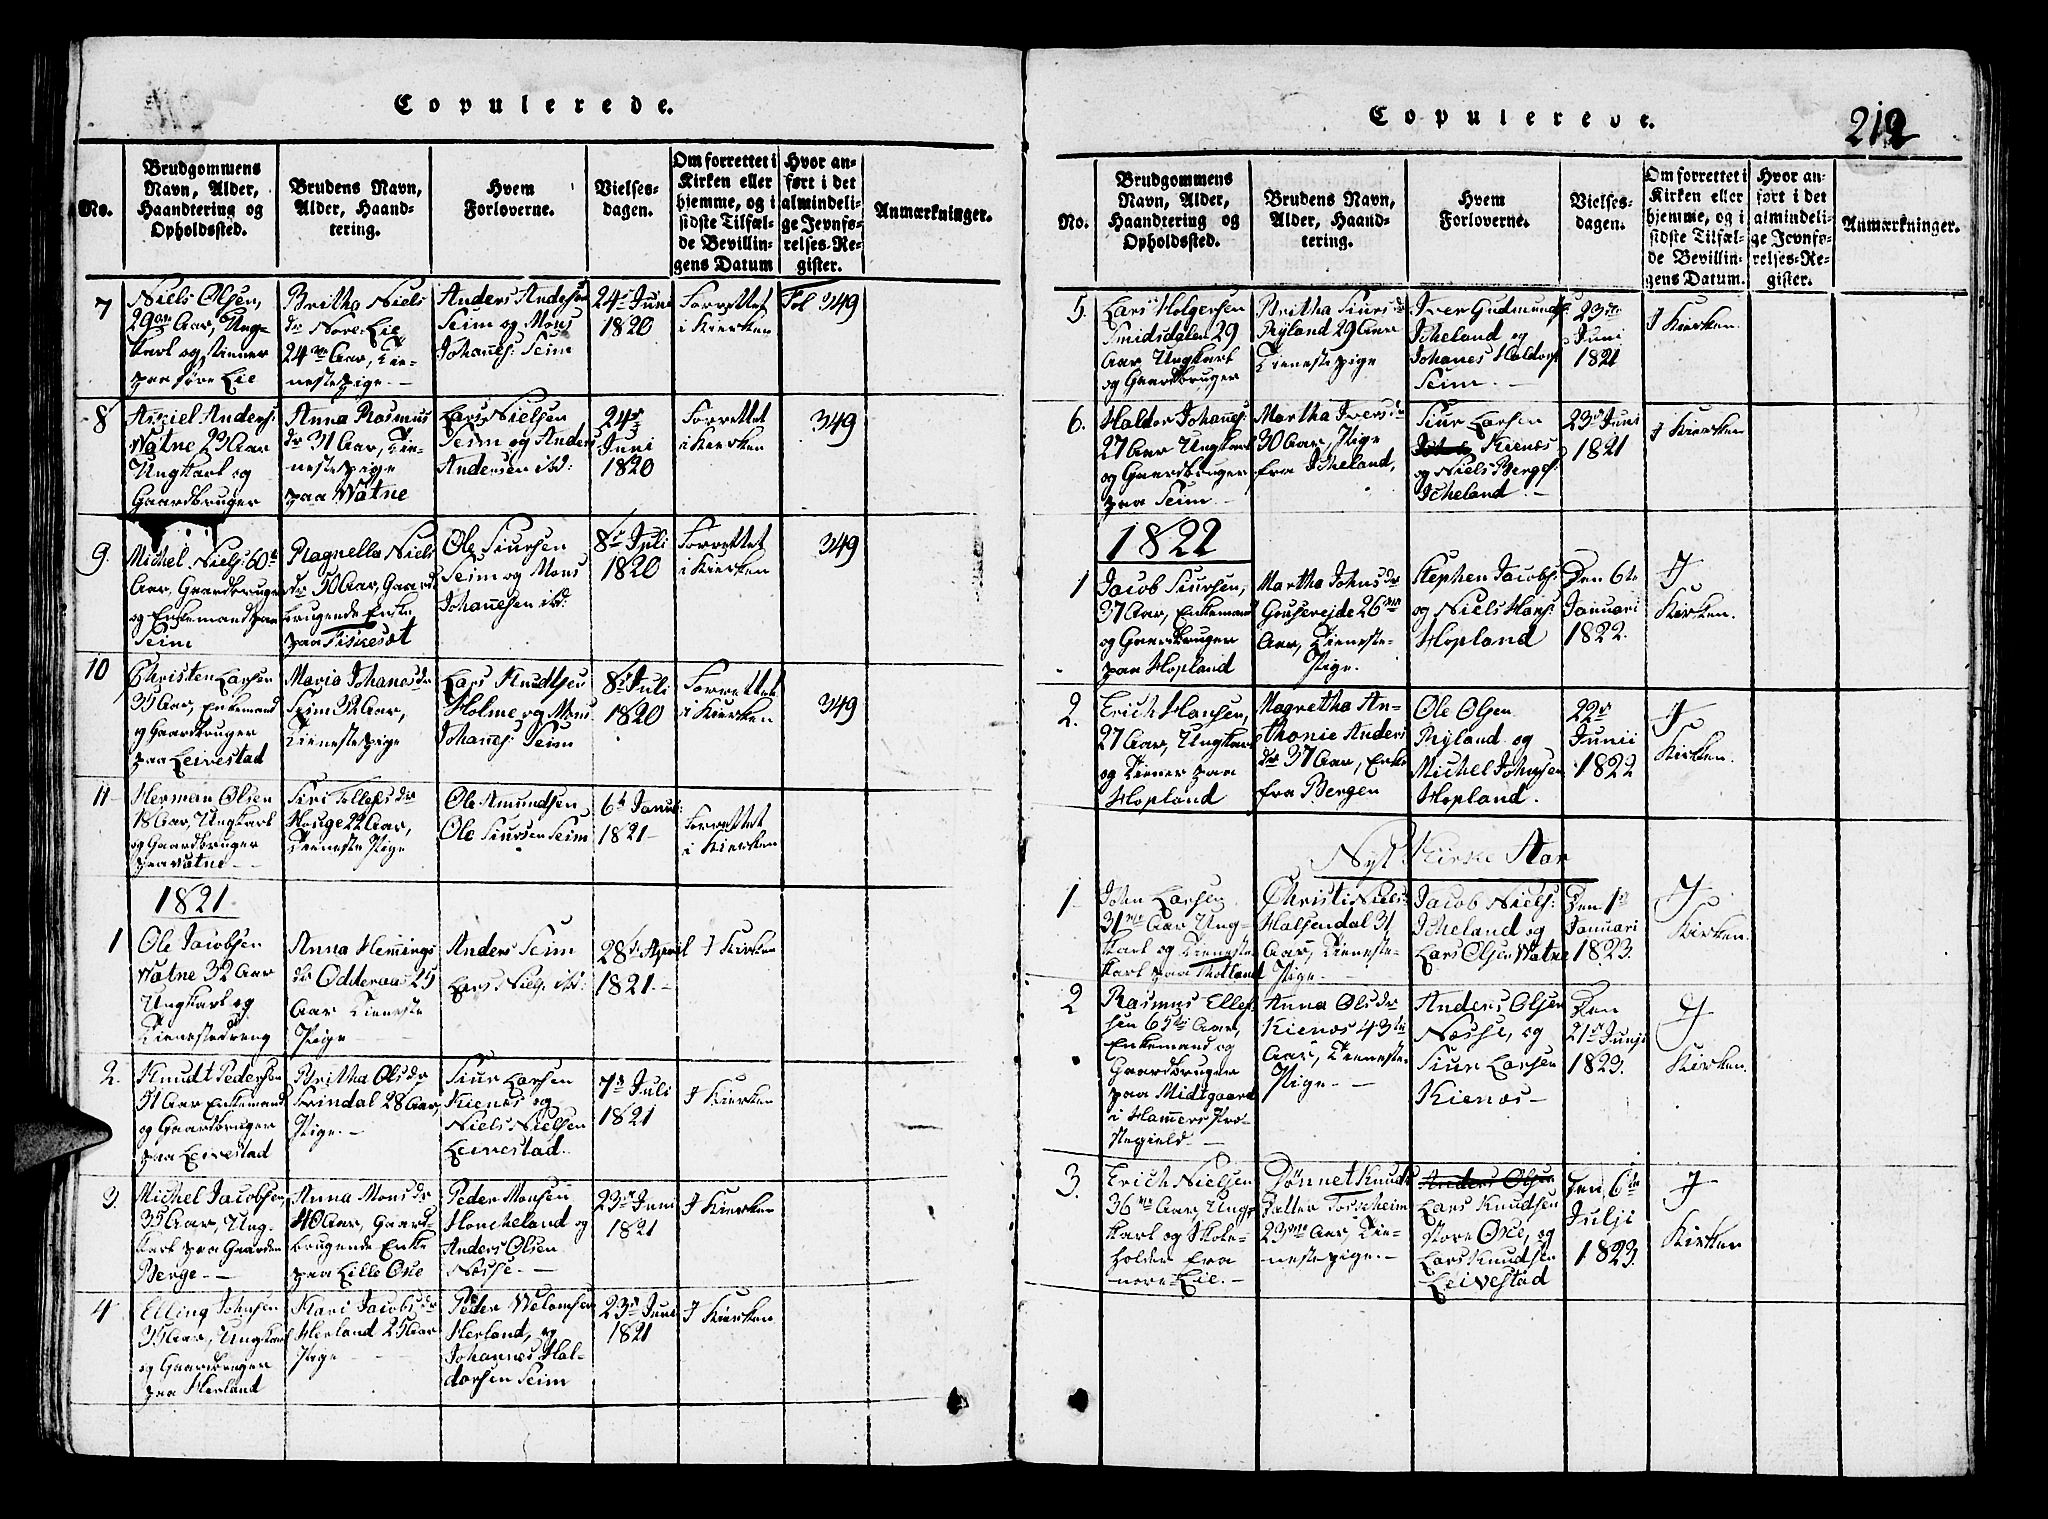 Copulerede.
No.
Brudgommens
Navn, Alder,
Haandtering og
Opholdssted.
Brudens Navn,
Alder, Haand-
tering.
Hvem
Forloverne.
Vielses-
dagen.
Om forrettet i
Kirken eller
hjemme, og i
sidste Tilfæl-
de Bevillin-
gens Datum
Hvor an-
ført i det
almindeli-
ge Jevnfø-
relses-Re-
gister.
Anmærkninger.
7
Niels Olsen,
29 Aar, Ung-
karl og tiener
paa Lie
Britha Niels
dr Nore Lie
24 Aar, Tie-
nestepige.
Anders Andersen
Seim og Mons
Johannes: Seim
24 Juni
1820
Forrettet
i Kierken
Fol 349
8
Anders:
Watne 23 Aar
Ungkarl og
Gaardbruger
Anna Rasmus
dr 31 Aar, Tie-
nestepige
paa Watne
Lars Nielsen
Seim og Anders
Andersen ibd:
24
Juni
1820
Forrettet
i Kierken
349
9.
Michel Niels: 60
Aar, Gaardbruger
og Enkemand paa
Seim
Ragnella Niels
dr 50 Aar, Gaard
brugende Enke
paa Fiskesæt
Ole Siursen
Seim og Mons
Johannesen ibd:
8 Juli
1820
Forrettet
i Kierken
349
10
Christen Larsen
35 Aar, Enkemand
og Gaardbruger
paa Leivestad
Maria Johanes dr
Seim 32 Aar,
Tienestepige
Lars Knudtsen
Holme og Mons
Johannes: Seim
8 Juli
1820
Forrettet
i Kierken
349
11
Herman Olsen
18 Aar, Ungkarl
og Gaardbruger
paa Watne
Siri Tollefs dr
Houge 22 Aar,
Tieneste Pige
Ole Amundsen
Ole Siursen Seim
6 Janua:
1821
Forrettet
i Kierken
1821
1
Ole Jacobsen
Watne 32 Aar
Ungkarl og
Tienestedreng
Anna Hemmings
dr Odderaas 25
Aar Tieneste
Pige
Anders Seim
Lars Niels: ibd:
28 April
1821.
I Kirken
2.
Knudt Pedersen
51 Aar Enkemand
og Gaardbruger
paa Leivestad
Britha Ols dr
Qvindal 28 Aar,
Pige.
Siur Larsen
Kienes og
Niels Nielsen
Leivestad.
7 Juli
1821
I Kierken
3.
Michel Jacobsen
35 Aar, Ung-
karl paa Gaarden
Berge
Anna Mons dr
40 Aar, Gaard-
brugende Enke
paa Lille Ose
Peder Monsen
Honcheland og
Anders Olsen
Nesse.
23 Juni
1821
I Kierken
4
Elling Johnsen
35 Aar, Ungkarl
og Gaardbruger
paa Herland
Kari Jacobs dr
Herland 25 Aar
Pige
Peder Welomsen
Herland, og
Johannes Hal-
dorsen Seim
23 Juni
1821
I Kierken
Copulerede.
212
No.
Brudgommens
Navn, Alder,
Haandtering og
Opholdssted.
Brudens Navn,
Alder, Haand-
tering.
Hvem
Forloverne.
Vielses-
dagen.
Om forrettet i
Kirken eller
hjemme, og i
sidste Tilfæl-
de Bevillin-
gens Datum.
Hvor an-
ført i det
almindeli-
ge Jevnfø-
relses-Re-
gister.
Anmærkninger.
5.
Lars Holgersen
Smidsdalen 29
Aar Ungkarl
og Gaardbruger
Britha Siurs dr
Ryland 29 Aar
Tienestepige
Iver Gudmunds:
Icheland og
Johanes Haldors
Seim.
23
Juni
1821
I Kierken.
6.
Haldor Johannes:
27 Aar Ungkarl
og Gaardbruger
paa Seim
Martha Ivers dr
30 Aar, Pige
fra Icheland,
Siur Larsen
Kienes
og Niels Berges:
Icheland.
23 Juni
1821
I Kierken
1822
1
Jacob Siursen,
37 Aar, Enkemand
og Gaardbruger
paa Hopland
Martha Johns dr
26
Aar, Tieneste-
Pige.
Stephen Jacobs:
og Niels Hans:
Hopland
Den 6te
Januari
1822.
I
Kirken.
2.
Erich Hansen,
27 Aar, Ungkarl
og Tiener paa
Hopland
Magretha An-
thonie Anders
dr 37 Aar, Enke
fra Bergen
Ole Olsen
Ryland og
Michel Johnsen
Hopland.
22
Junii
1822
I
Kirken.
Nyt Kirke Aar
1
John Larsen
31 Aar Ung-
karl og Tieneste
karl paa Molland
Christi Niels:
Halsendal 31
Aar, Tieneste-
Pige.
Jacob Niels:
Icheland og
Lars Olsen Watne
Den 1
Januari
1823.
I
Kirken.
2
Rasmus Ellef-
sen 65 Aar,
Enkemand og
Gaardbruger
paa Midtgaard
i Hammers Præ-
stegield
Anna Ols dr
Kienes 43
Aar, Tieneste-
Pige.
Anders Olsen
Nesse, og
Siur Larsen
Kienes
Den
21 Junji
1823.
I
Kirken.
3.
Erich Nielsen
36 Aar, Ung-
karl og Skole-
holder fra
nore Lie.
Dønnet Knuds
Datter Fosseheim
23 Aar, Tie-
nestepige.
Anders Olsen
Lars Knudsen
store Ose, og
Lars Knudsen
Leivestad
Den 6te
Julji
1823.
I
Kirken